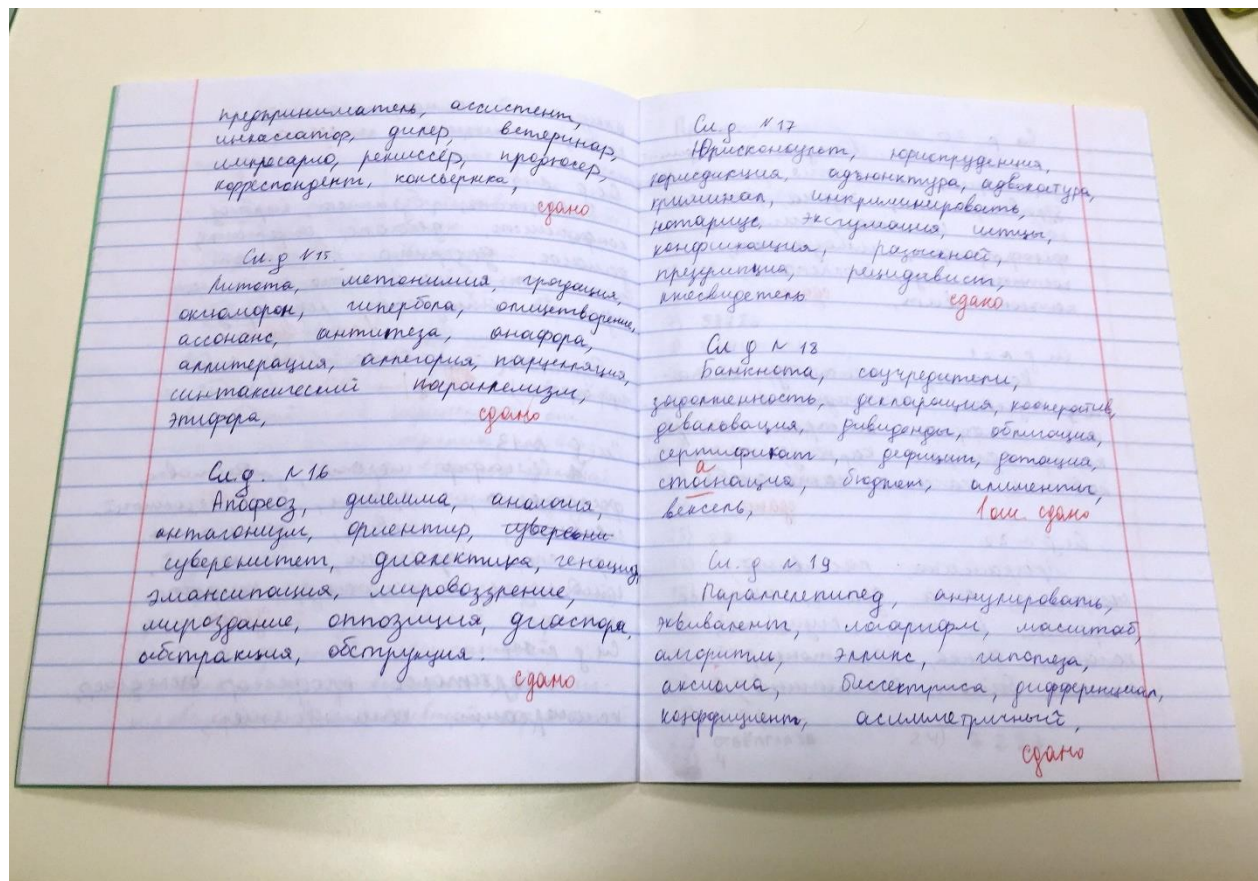 предприниматель, ассистент,
инкассатор, дилер, ветеринар,
импресарио, режиссёр, продюсер,
корреспондент, консьержка,
сдано
Сл. д №15
Литота, метонимия, градация,
оксюморон, гипербола, олицетворение,
ассонанс, антитеза, анафора,
аллитерация, аллегория, парцелляция,
синтаксический параллелизм,
эпифора, сдано
Сл. д. №16
Апофеоз, дилемма, аналогия
антагонизм, ориентир,
суверенитет, диалектика, геноцид,
эмансипация, мировоззрение,
мироздание, оппозиция, диаспора,
абстракция, обструкция.
сдано
Сл. д №17
Юрисконсульт, юриспруденция,
юрисдикция, адъюнктура, адвокатура,
криминал, инкриминировать,
нотариус, эксгумация, истцы,
конфискация, разыскной,
презумпция, рецидивист,
лжесвидетель сдано
Сл д № 18
Банкнота, соучредители,
задолженность, декларация, кооператив,
девальвация, дивиденды, облигация,
сертификат, дефицит, дотация,
а
стогнация, бюджет, алименты,
вексель, 1 ош. сдано
Сл. д № 19
Параллелепипед, аннулировать,
эквивалент, логарифм, масштаб,
алгоритм, эллипс, гипотеза,
аксиома, биссектриса, дифференциал,
коэффициент, асимметричный,
сдано